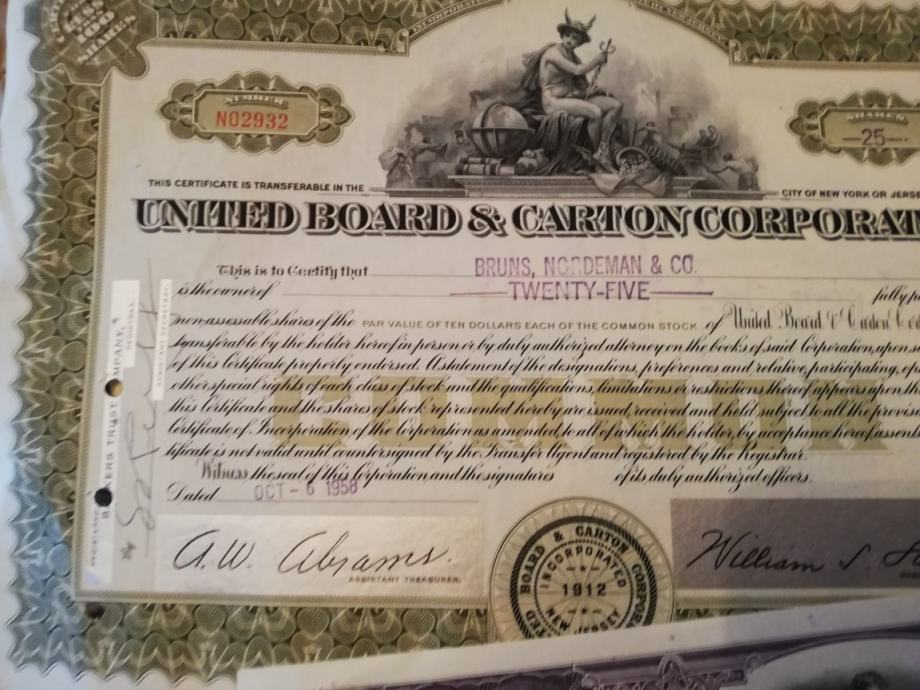 LESS
THAN
100
SHARES
NUMBER
NO2932
SHARES
25
THIS CERTIFICATE IS TRANSFERABLE IN THE
CITY OF NEW YORK OR JERS
UNITED BOARD & CARTON CORPORAT
This is to Certify that BRUNS, NORDEMAN & CO.
is the owner of TWENTY-FIVE fully p
non-assessable shares of the PAR VALUE OF TEN DOLLARS EACH OF THE COMMON STOCK of United Board & Carton Co
transferable by the holder hereof in person or by duly authorized attorney on the books of said Corporation, upon s
of this Certificate properly endorsed. A statement of the designations, preferences and relative, participating, op
other special rights of each class of stock and the qualifications, limitations or restrictions thereof appears upon th
this Certificate and the shares of stock represented hereby are issued, received and held subject to all the provis
Certificate of Incorporation of the Corporation as amended, to all of which the holder, by acceptance hereof assent
tificate is not valid until countersigned by the Transfer Agent and registered by the Registrar.
Witness, the seal of this Corporation and the signatures of its duly authorized officers.
Dated OCT - 6 1958
A. W. Abrams.
ASSISTANT TREASURER.
William S.
BOARD & CARTON CORPOR
INCORPORATED
1912
NEW JERSEY
TRUST
By
REGISTRAR